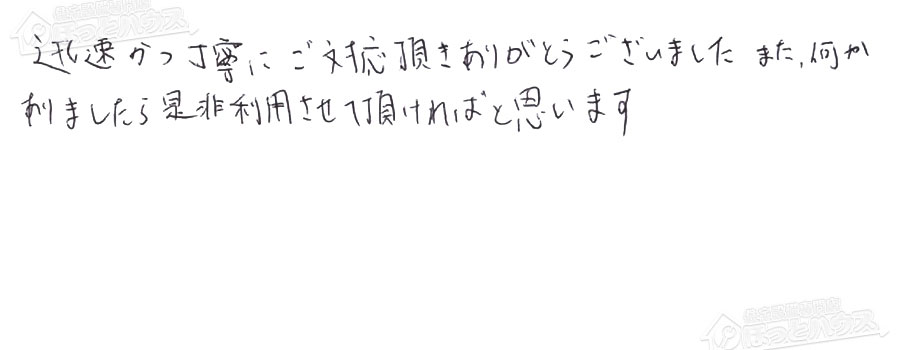 迅速かつ丁寧にご対応頂きありがとうございました また、何か
ありましたら是非利用させて頂ければと思います
ほっとハウス
ほっとハウス